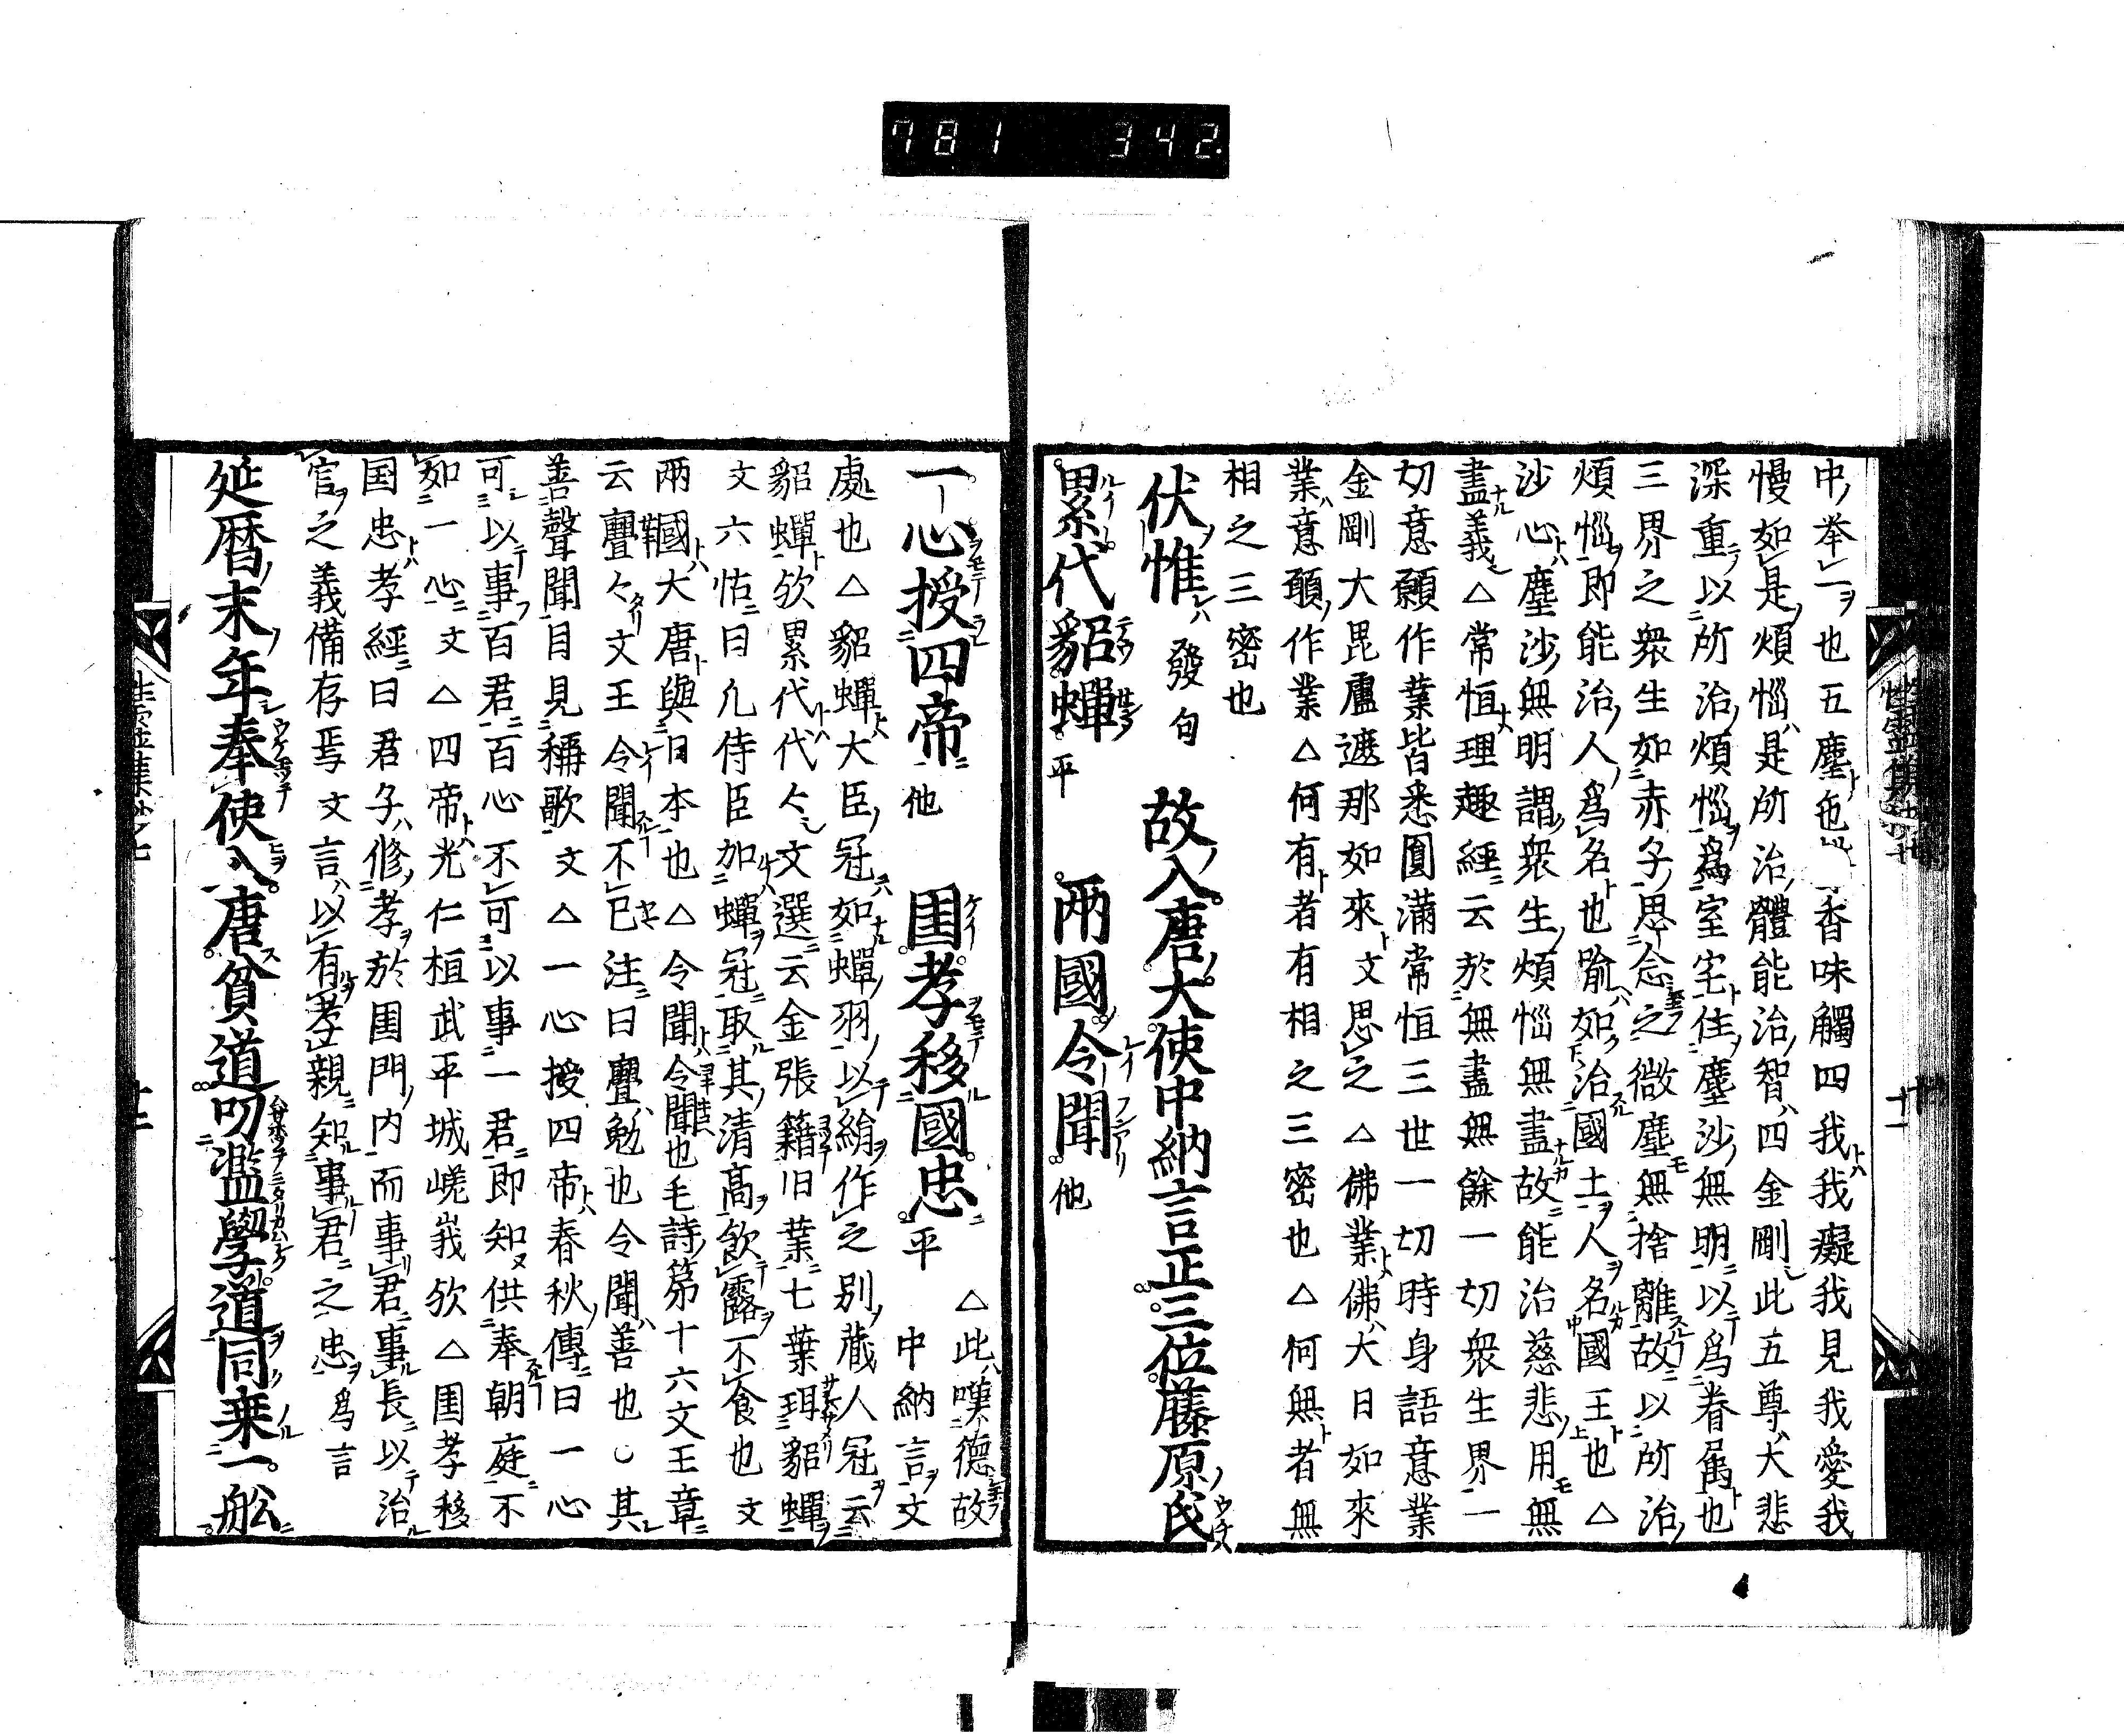 781 342
中ノ举一ヲ也五塵ト色香味觸四我トハ我癡我見我愛我
慢如是ノ煩惱ハ是所治ノ體能治ノ智ハ四金剛此五尊ハ大悲
深重以所治ノ煩惱ヲ爲室宅ト住塵沙ノ無明ニ以テ爲眷属ト也
三界之衆生如赤子ノ思念之微塵モ無捨離故ニ以所治ノ
煩惱ヲ即能治ノ人ノ爲名ト也喩ハ如治國土ヲ人ヲ名國王ト也△
沙心トハ塵沙ノ無明謂ク衆生ノ煩惱無盡ナルカ故ニ能治慈悲ノ用モ無
盡ナル義△常恒ナル理趣經ニ云於無盡無餘一切衆生界一
切意願作業皆悉圓滿常恒三世一切時身語意業
金剛大毘盧遮那如來ト文思之△佛業トハ佛ハ大日如來
業ハ意願ノ作業△何有ト者有相之三密也△何無ト者無
相之三密也
伏惟レハ發句故入唐大使中納言正三位藤原氏
累代貂蟬平兩國令聞他
一心授四帝他閨孝移國忠平△此ハ嘆德故
處也△貂蟬トハ大臣ノ冠如蟬ノ羽ノ以テ絹ヲ作之別ノ蔵人冠ヲ云
貂蟬ト欤累代トハ代々文選ニ云金張籍旧業七葉珥貂蟬
文六帖ニ曰凡侍臣加蟬ヲ冠ニ取其ノ清高ヲ飲テ露ヲ不食也文
兩國トハ大唐ト與日本也△令聞トハ令聞也毛詩第十六文王章
云亹々文王令聞不已注曰亹ハ勉也令聞ハ善也其
善聲聞目見稱歌文△一心授四帝トハ春秋傳ニ曰一心
可以事百君百心不可以事一君即知又供奉朝庭不
如一心文△四帝トハ光仁桓武平城嵯峨欤△閨孝移
国忠トハ孝經ニ曰君子ハ修孝於閨門ノ内而事君事長以テ治
官之義備存焉文言ハ以有孝親ニ知事君之忠ヲ爲言
延暦末ノ年奉使入唐貧道叨濫學道同乗一舩
中納言文